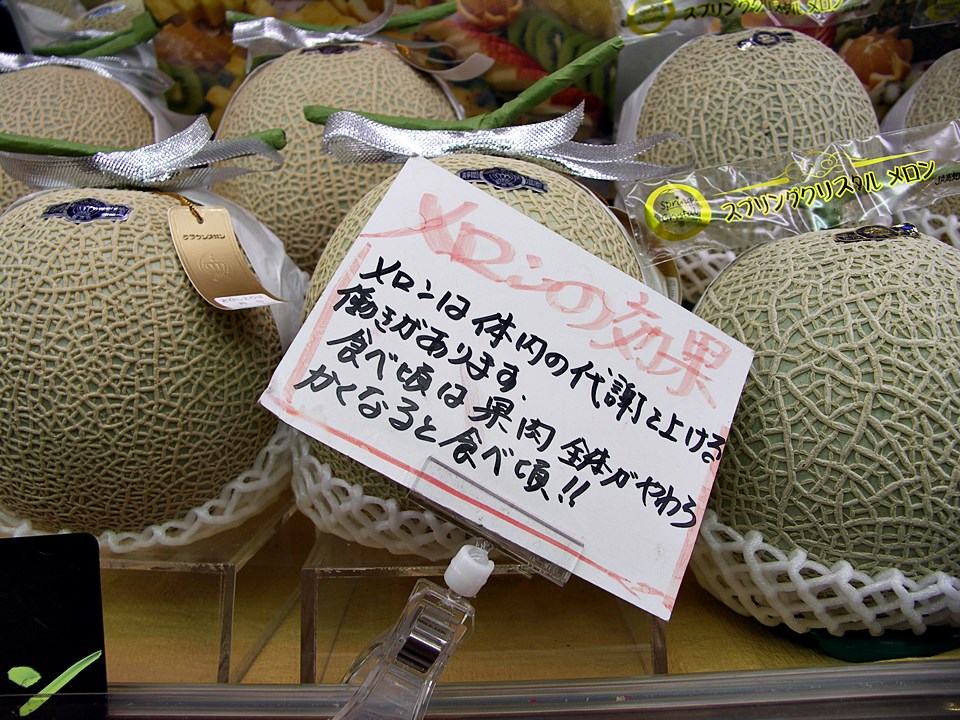 スプリングクリスタル メロン
スプリングクリスタル メロン
クラウンメロン
メロンの効果
メロンは体内の代謝を上ける
働きがあります.
食べ頃は果肉全体がやわら
かくなると食べ頃!!